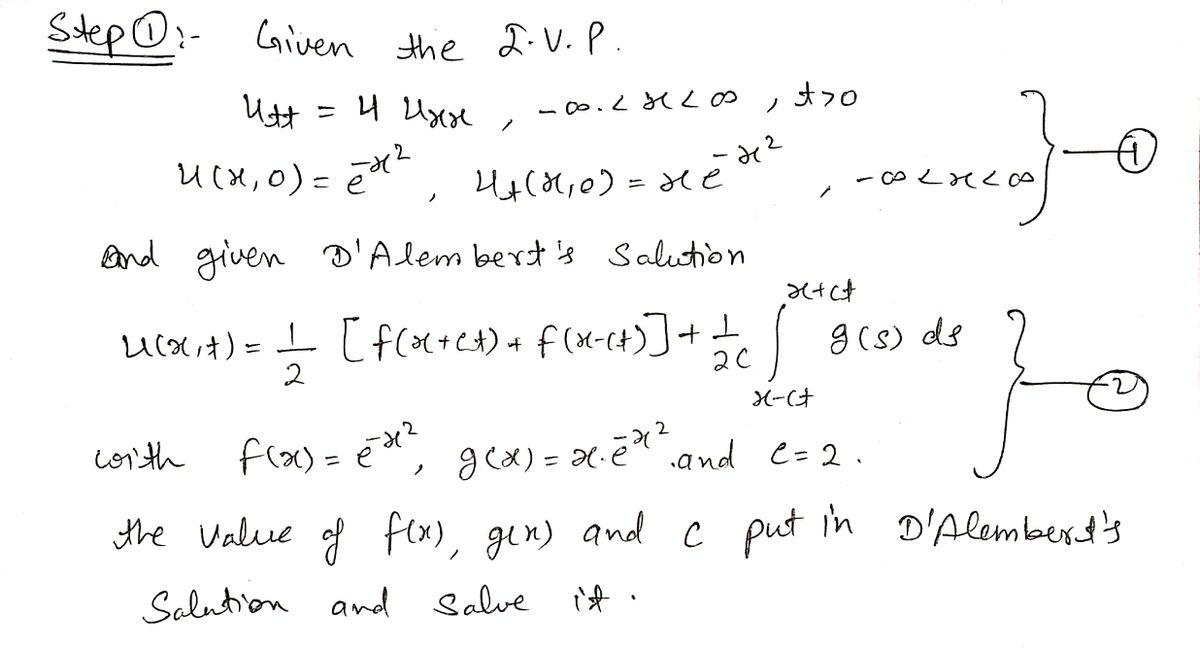 Step ①:- Given the I.V.P.
u_tt = 4 u_xx , -∞.< x < ∞ , t>0
u(x,0) = e^-x² , u_t(x,0) = x e^-x² , -∞ < x < ∞ } — ①
And given D'Alembert's Salution
u(x,t) = 1/2 [f(x+ct) + f(x-ct)] + 1/2c ∫_{x-ct}^{x+ct} g(s) ds } — ②
with f(x) = e^-x² , g(x) = x.e^-x² .and c = 2 .
the value of f(x), g(x) and c put in D'Alembert's
Salution and Salve it .